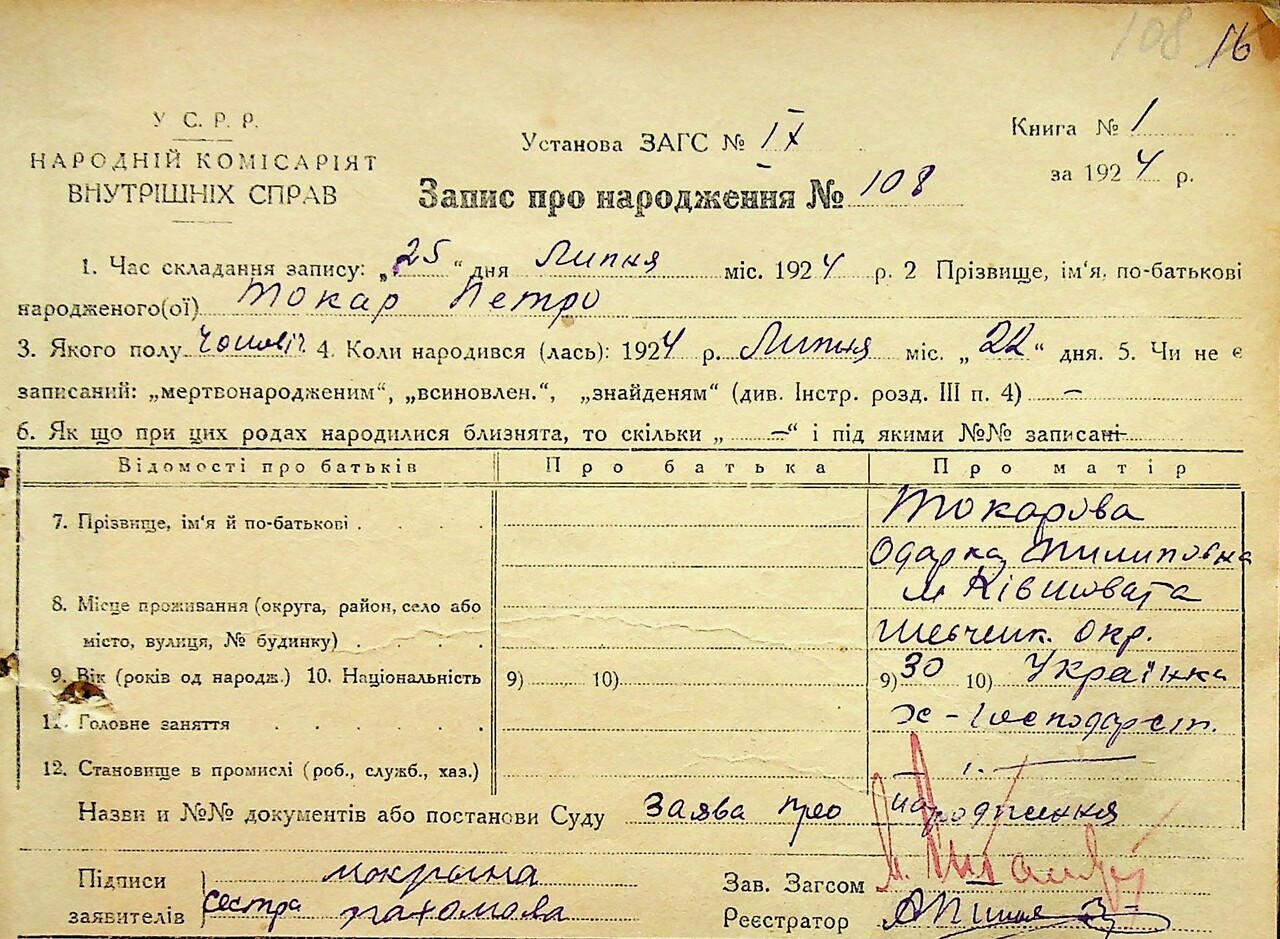 108 16
У С. Р. Р.
НАРОДНІЙ КОМІСАРІЯТ
ВНУТРІШНІХ СПРАВ
Установа ЗАГС № IX
Запис про народження № 108
Книга № 1
за 1924 р.
1. Час складання запису: „25“ дня Липня міс. 1924 р. 2 Прізвище, ім‘я, по-батькові
народженого(ої) Токар Петро
3. Якого полу чоловіч. 4. Коли народився (лась): 1924 р. Липня міс. „22“ дня. 5. Чи не є
записаний: „мертвонародженим“, „всиновлен.“, „знайденям“ (див. Інстр. розд. III п. 4) —
6. Як що при цих родах народилися близнята, то скільки „—“ і під якими №№ записані —
Відомості про батьків Про батька Про матір
7. Прізвище, ім‘я й по-батькові Токарова
Одарка Пилиповна
8. Місце проживання (округа, район, село або м Ківшовата
місто, вулиця, № будинку) Шевченк. окр.
9. Вік (років од народж.) 10. Національність 9) 10) 9) 30 10) Українка
11. Головне заняття х-господарст.
12. Становище в промислі (роб., служб., хаз.) —
Назви и №№ документів або постанови Суду Заява про народження
Підписи Мокрына
заявителів сестра Пахомова
Зав. Загсом
Реєстратор